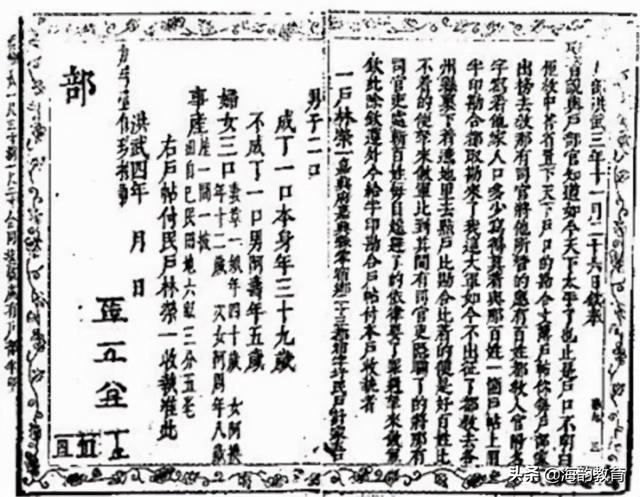 部洪武三年十一月二十六日欽奉
聖旨說與戶部官知道如今天下太平了也止是戶口不明白
教中書省置下天下戶口的勘合文簿戶帖你每戶部家
出榜去教那有司官將他所管的應有百姓都教入官附名
字寫着他家人口多少寫得真着與那百姓一箇戶帖上用
半印勘合都取勘來了我這大軍如今不出征了都教去各
州縣裏下着遶地里去點戶比勘合比着的便是好百姓比
不着的便拿來做軍比到其間有司官吏隱瞞了的將那有
司官吏處斬百姓每自趓避了的依律要了罪過拿來做軍
欽此除欽遵外今給半印勘合戶帖付本戶收執者
一戶林榮一嘉興府嘉興縣零宿鄉二十三都宿字圩民戶計家五口
男子二口
成丁一口本身年三十九歲
不成丁一口男阿壽年五歲
婦女三口妻章一娘年四十歲 女阿換
年十二歲 次女阿周年八歲
事產屋一間一披
田自己民田地六畝三分五毫
右戶帖付民戶林榮一收執准此
洪武四年 月 日
部
头条 @海韵教育